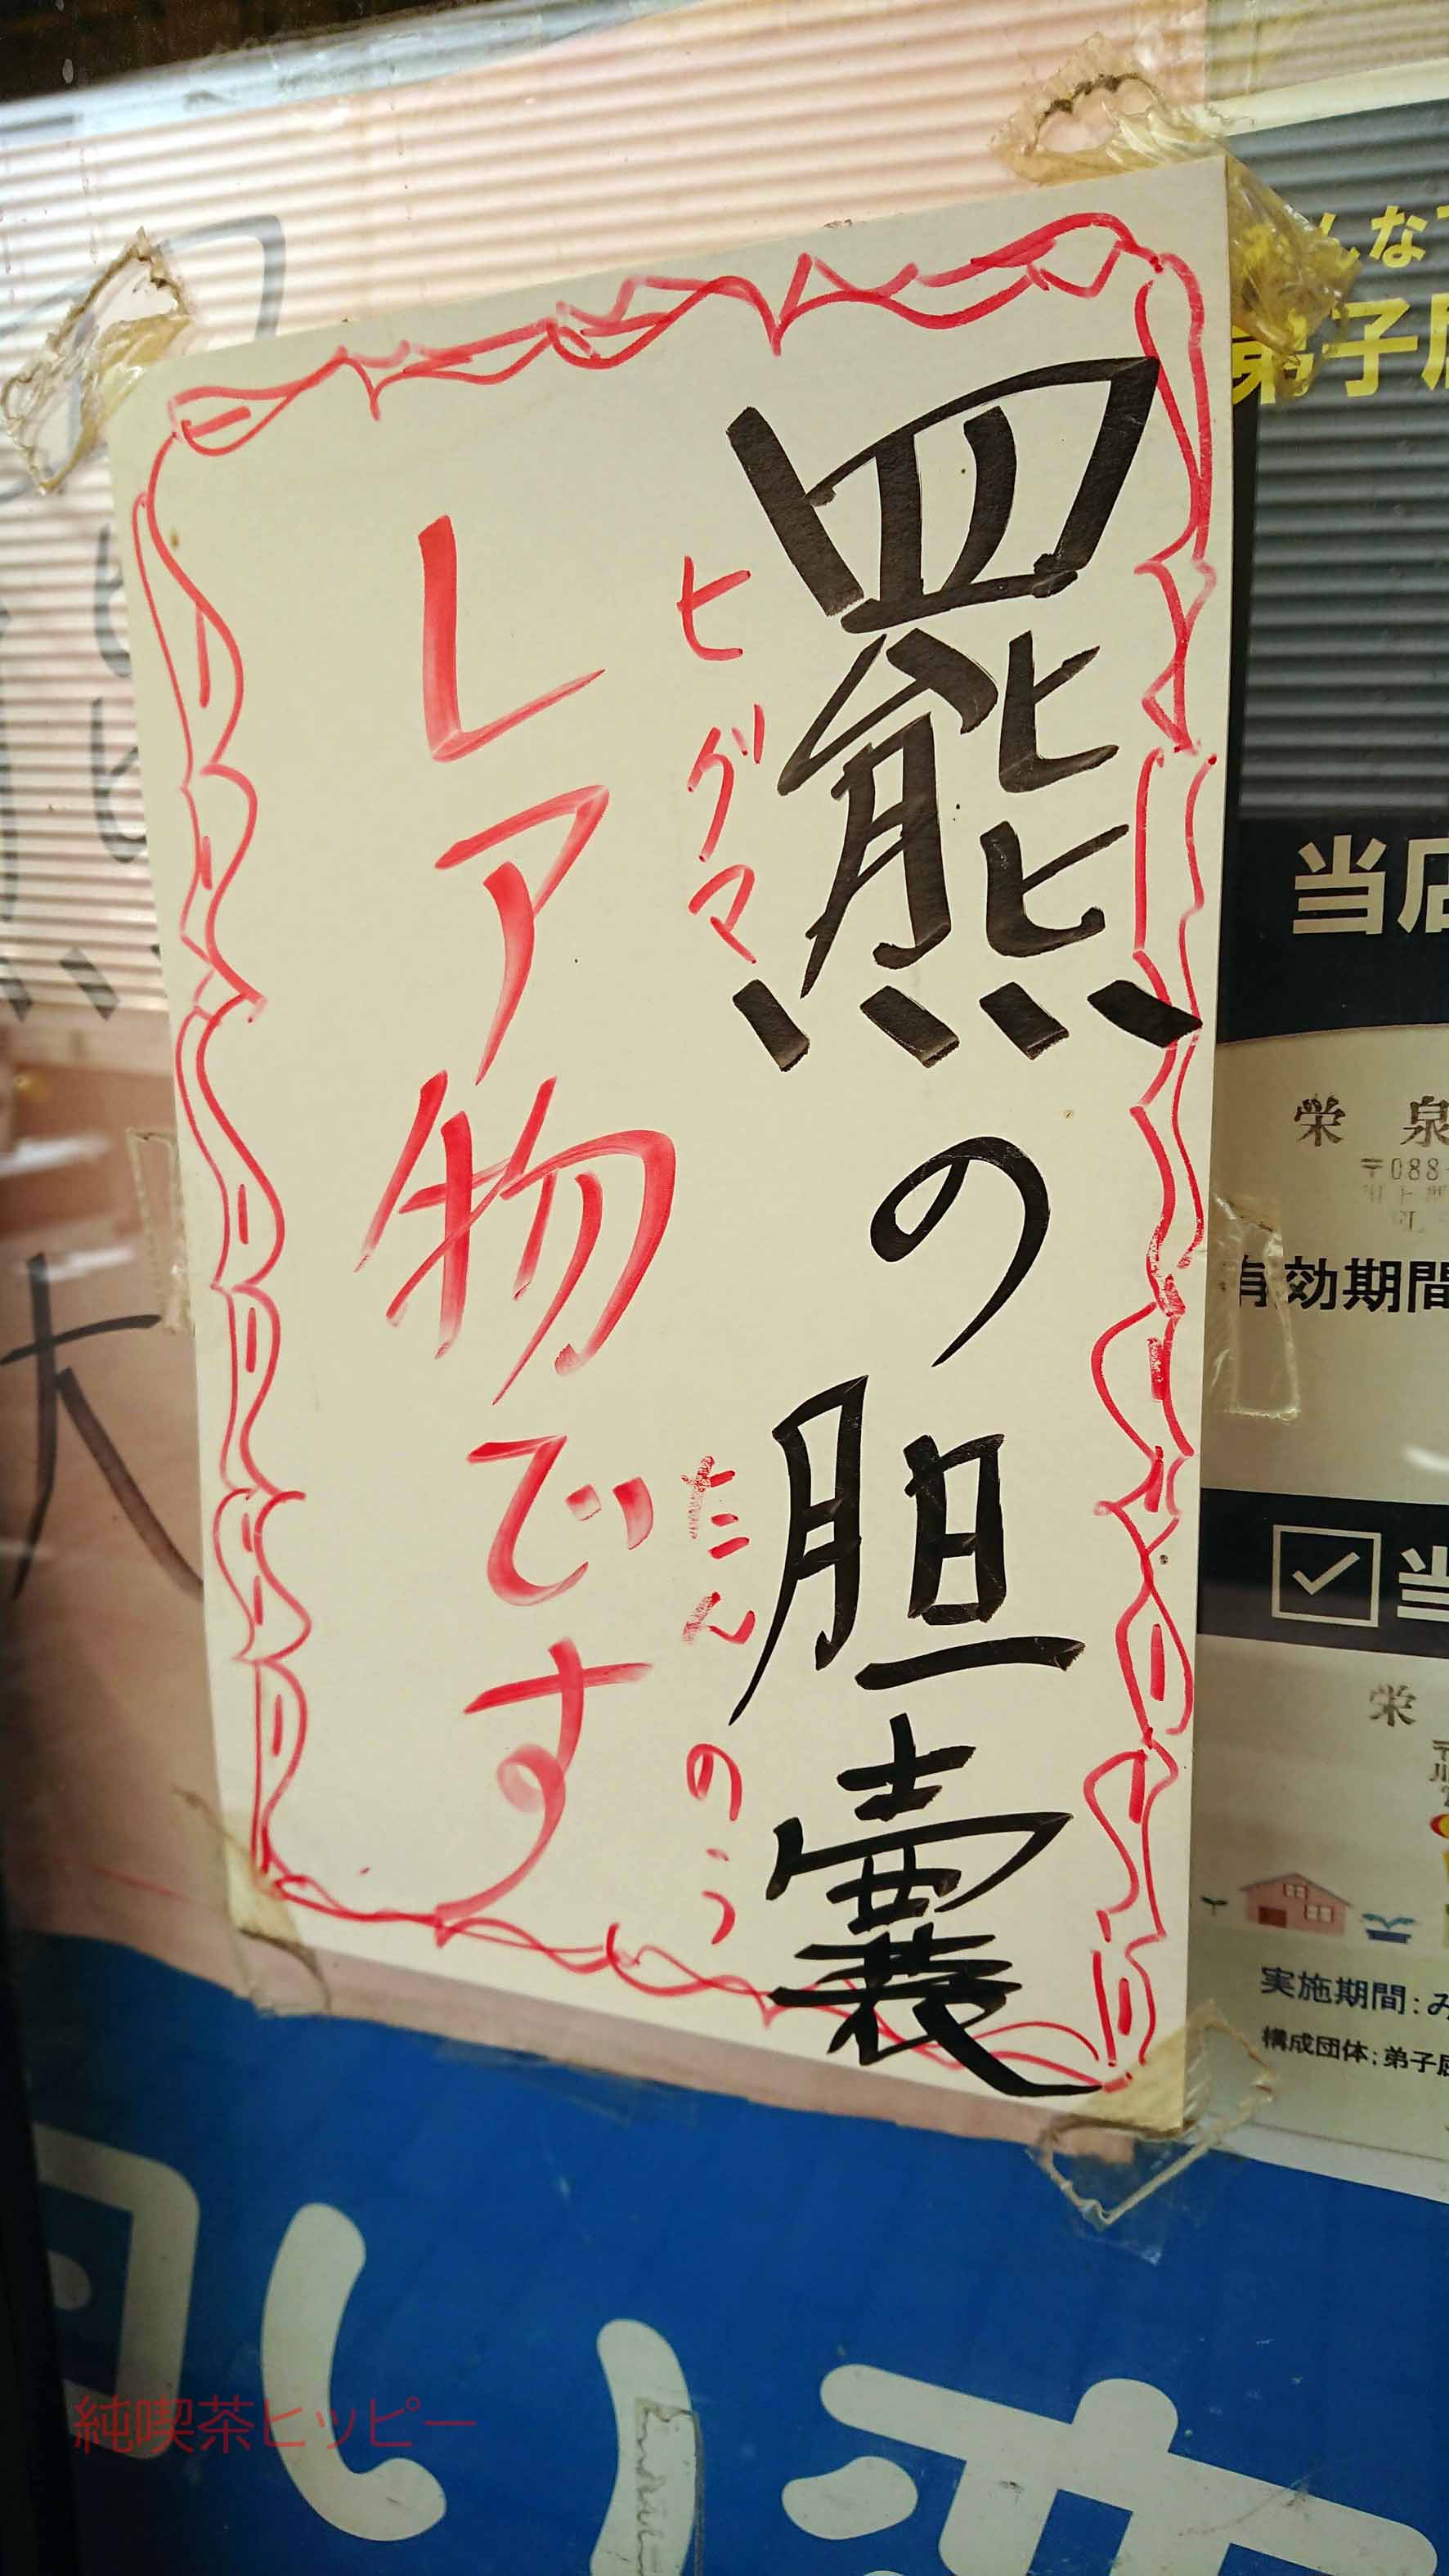 羆の胆嚢
ヒグマ
たんのう
レア物です
んな
弟子屈
当店
栄 泉
〒088
有効期間
当
栄
実施期間:み
構成団体:弟子屈
純喫茶ヒッピー